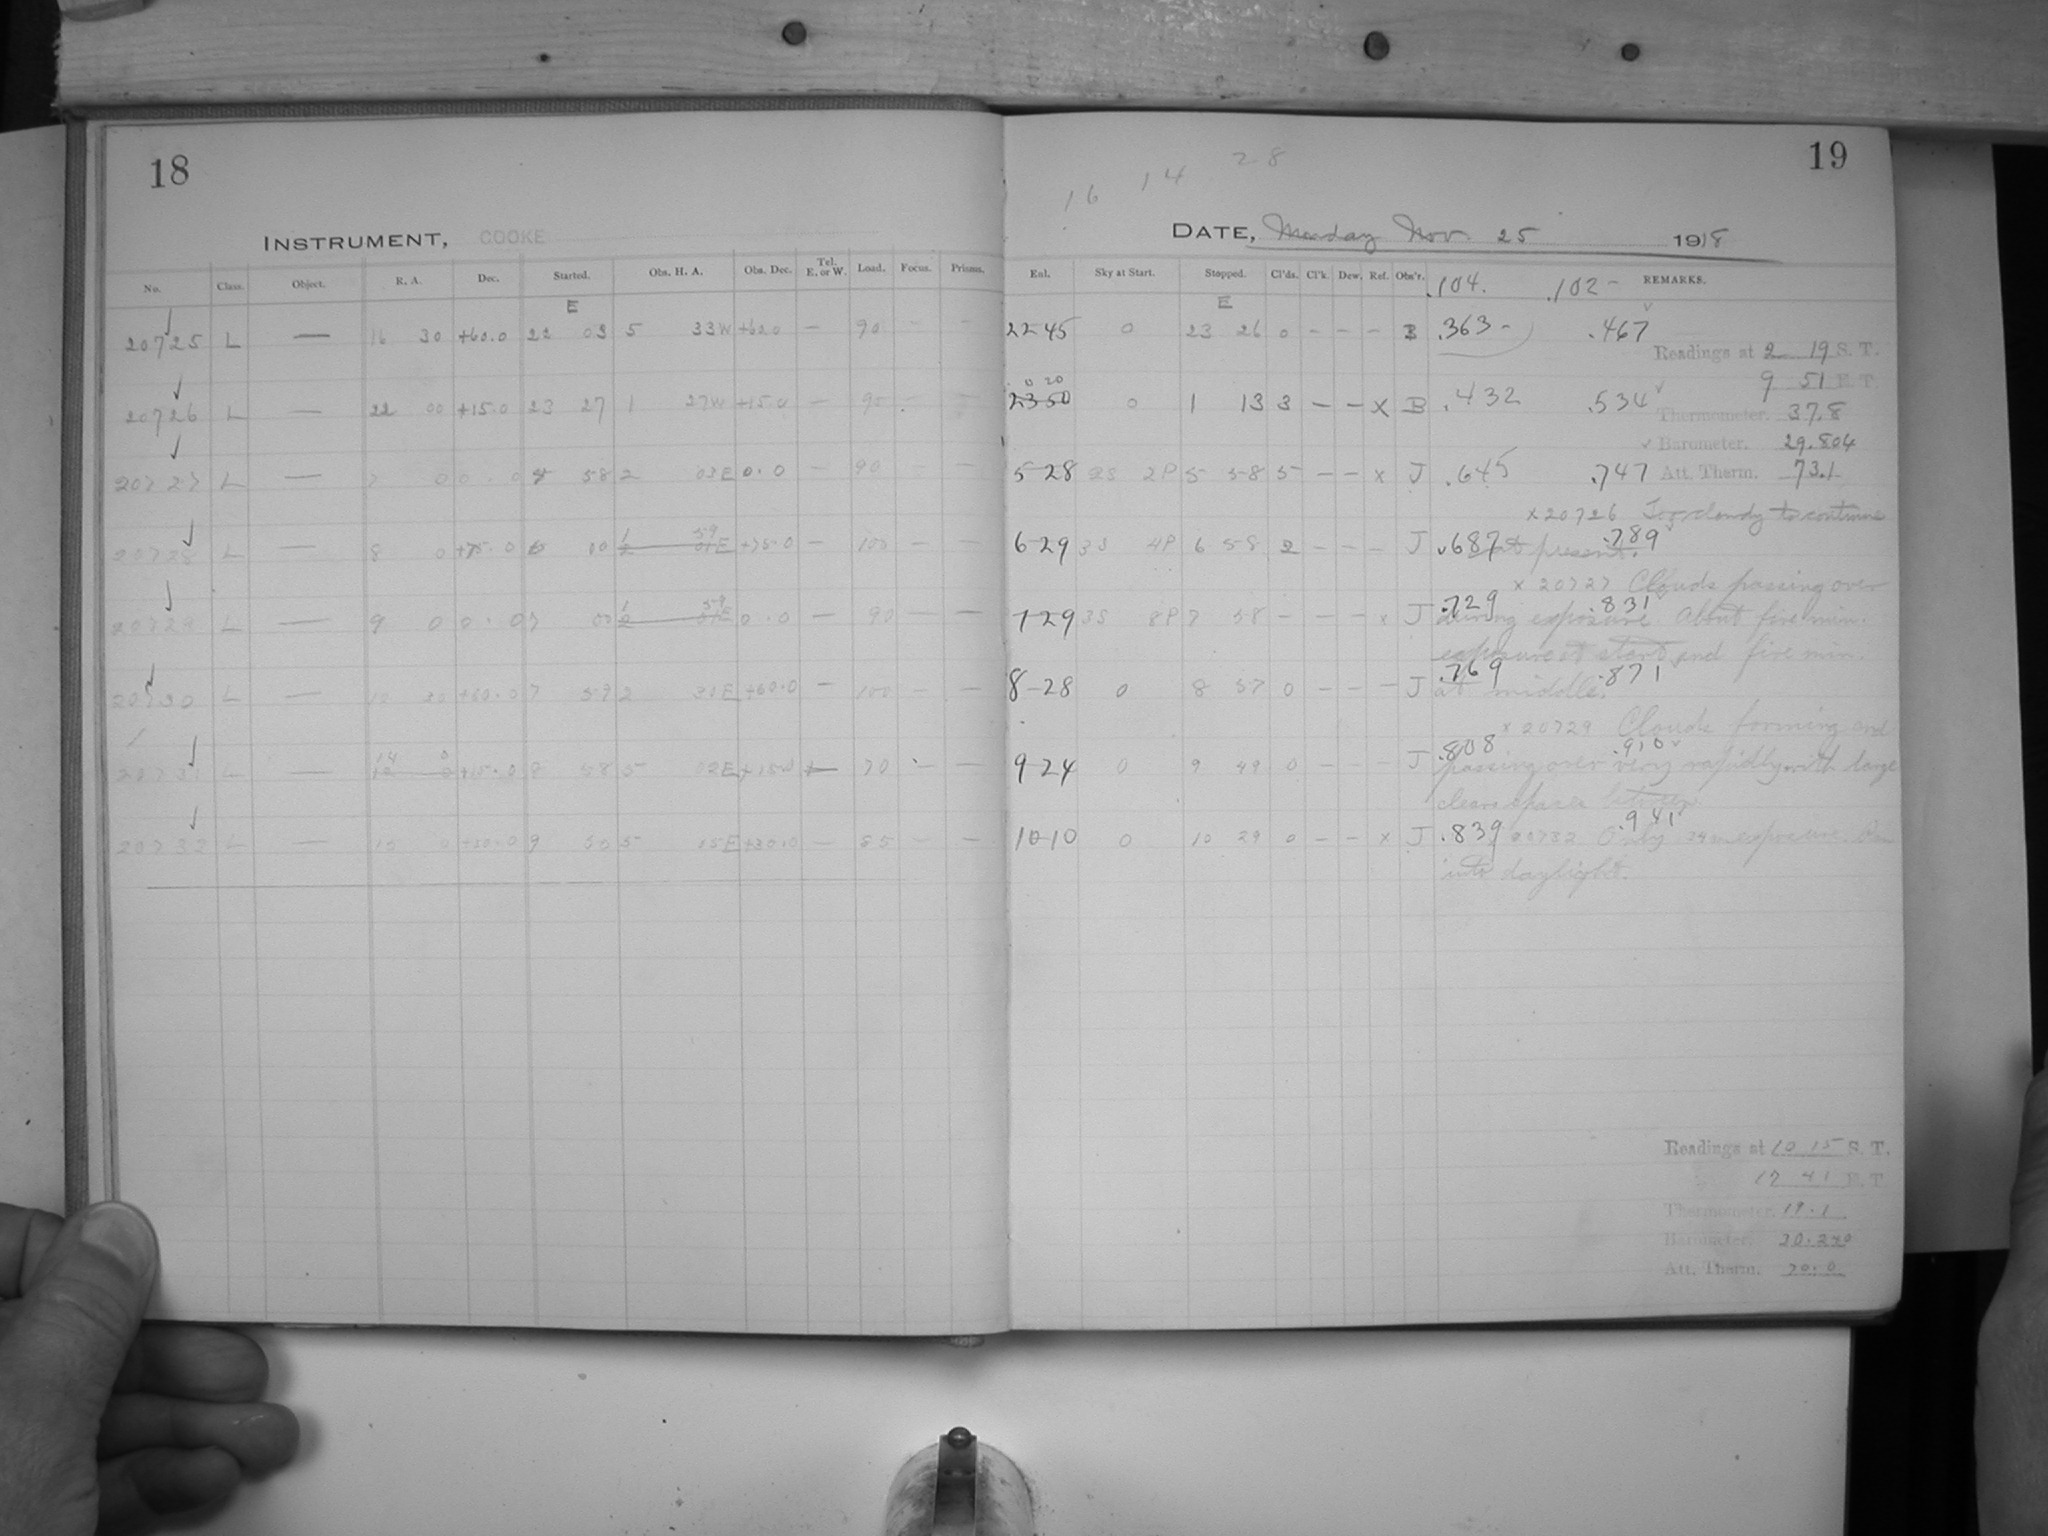 18
INSTRUMENT, COOKE
No. Class. Object. R. A. Dec. Started. Obs. H. A. Obs. Dec. Tel. E. or W. Load. Focus. Prisms.
E
20725 L — 16 30 +60.0 22 03 5 33W +60.0 — 90 — —
20726 L — 22 00 +15.0 23 27 1 27W +15.0 — 90 — —
20727 L — 7 0 0.0 58 2 03E 0.0 — 90 — —
20728 L — 8 0 +75.0 6 00 1 59 E +75.0 — 100 — —
20729 L — 9 0 0.0 7 00 1 59 E 0.0 — 90 — —
20730 L — 10 30 +60.0 7 59 2 30E +60.0 — 100 — —
20731 L — 14 0 +15.0 8 58 5 02E +15.0 — 70 — —
20732 L — 15 0 +30.0 9 50 5 E +30.0 — 85 — —
19
16 14 28
DATE, Monday Nov. 25 1918
Enl. Sky at Start. Stopped. Cl'ds. Cl'k. Dew. Ref. Obs'r. .104. .102 – REMARKS.
E
22 45 0 23 26 0 – – – B .363 – .467
Readings at 2 19 S. T.
9 51 E. T.
0 20
23 50 0 1 13 3 – – X B .432 .534
Thermometer. 37.8
Barometer. 29.804
5-28 2S 2P 5 58 5 – – x J .645 .747
Att. Therm. 73.1
x 20726 Too cloudy to continue
6-29 3S 4P 6 58 2 – – – J .687 .789
at present.
x 20727 Clouds passing over
7-29 3S 8P 7 58 – – – x J .729 .831
during exposure. About five min.
exposure at start and five min.
8-28 0 8 57 0 – – – J .769 .871
at middle.
x 20729 Clouds forming and
9-24 0 9 49 0 – – – J .808 .910
passing over very rapidly with large
clear spaces between.
10-10 0 10 29 0 – – x J .839 .941
20732 Only exposure. Ran
into daylight.
Readings at 10 15 S. T.
17 41 E. T.
Thermometer. 19.1
Barometer.
Att. Therm. 70.0